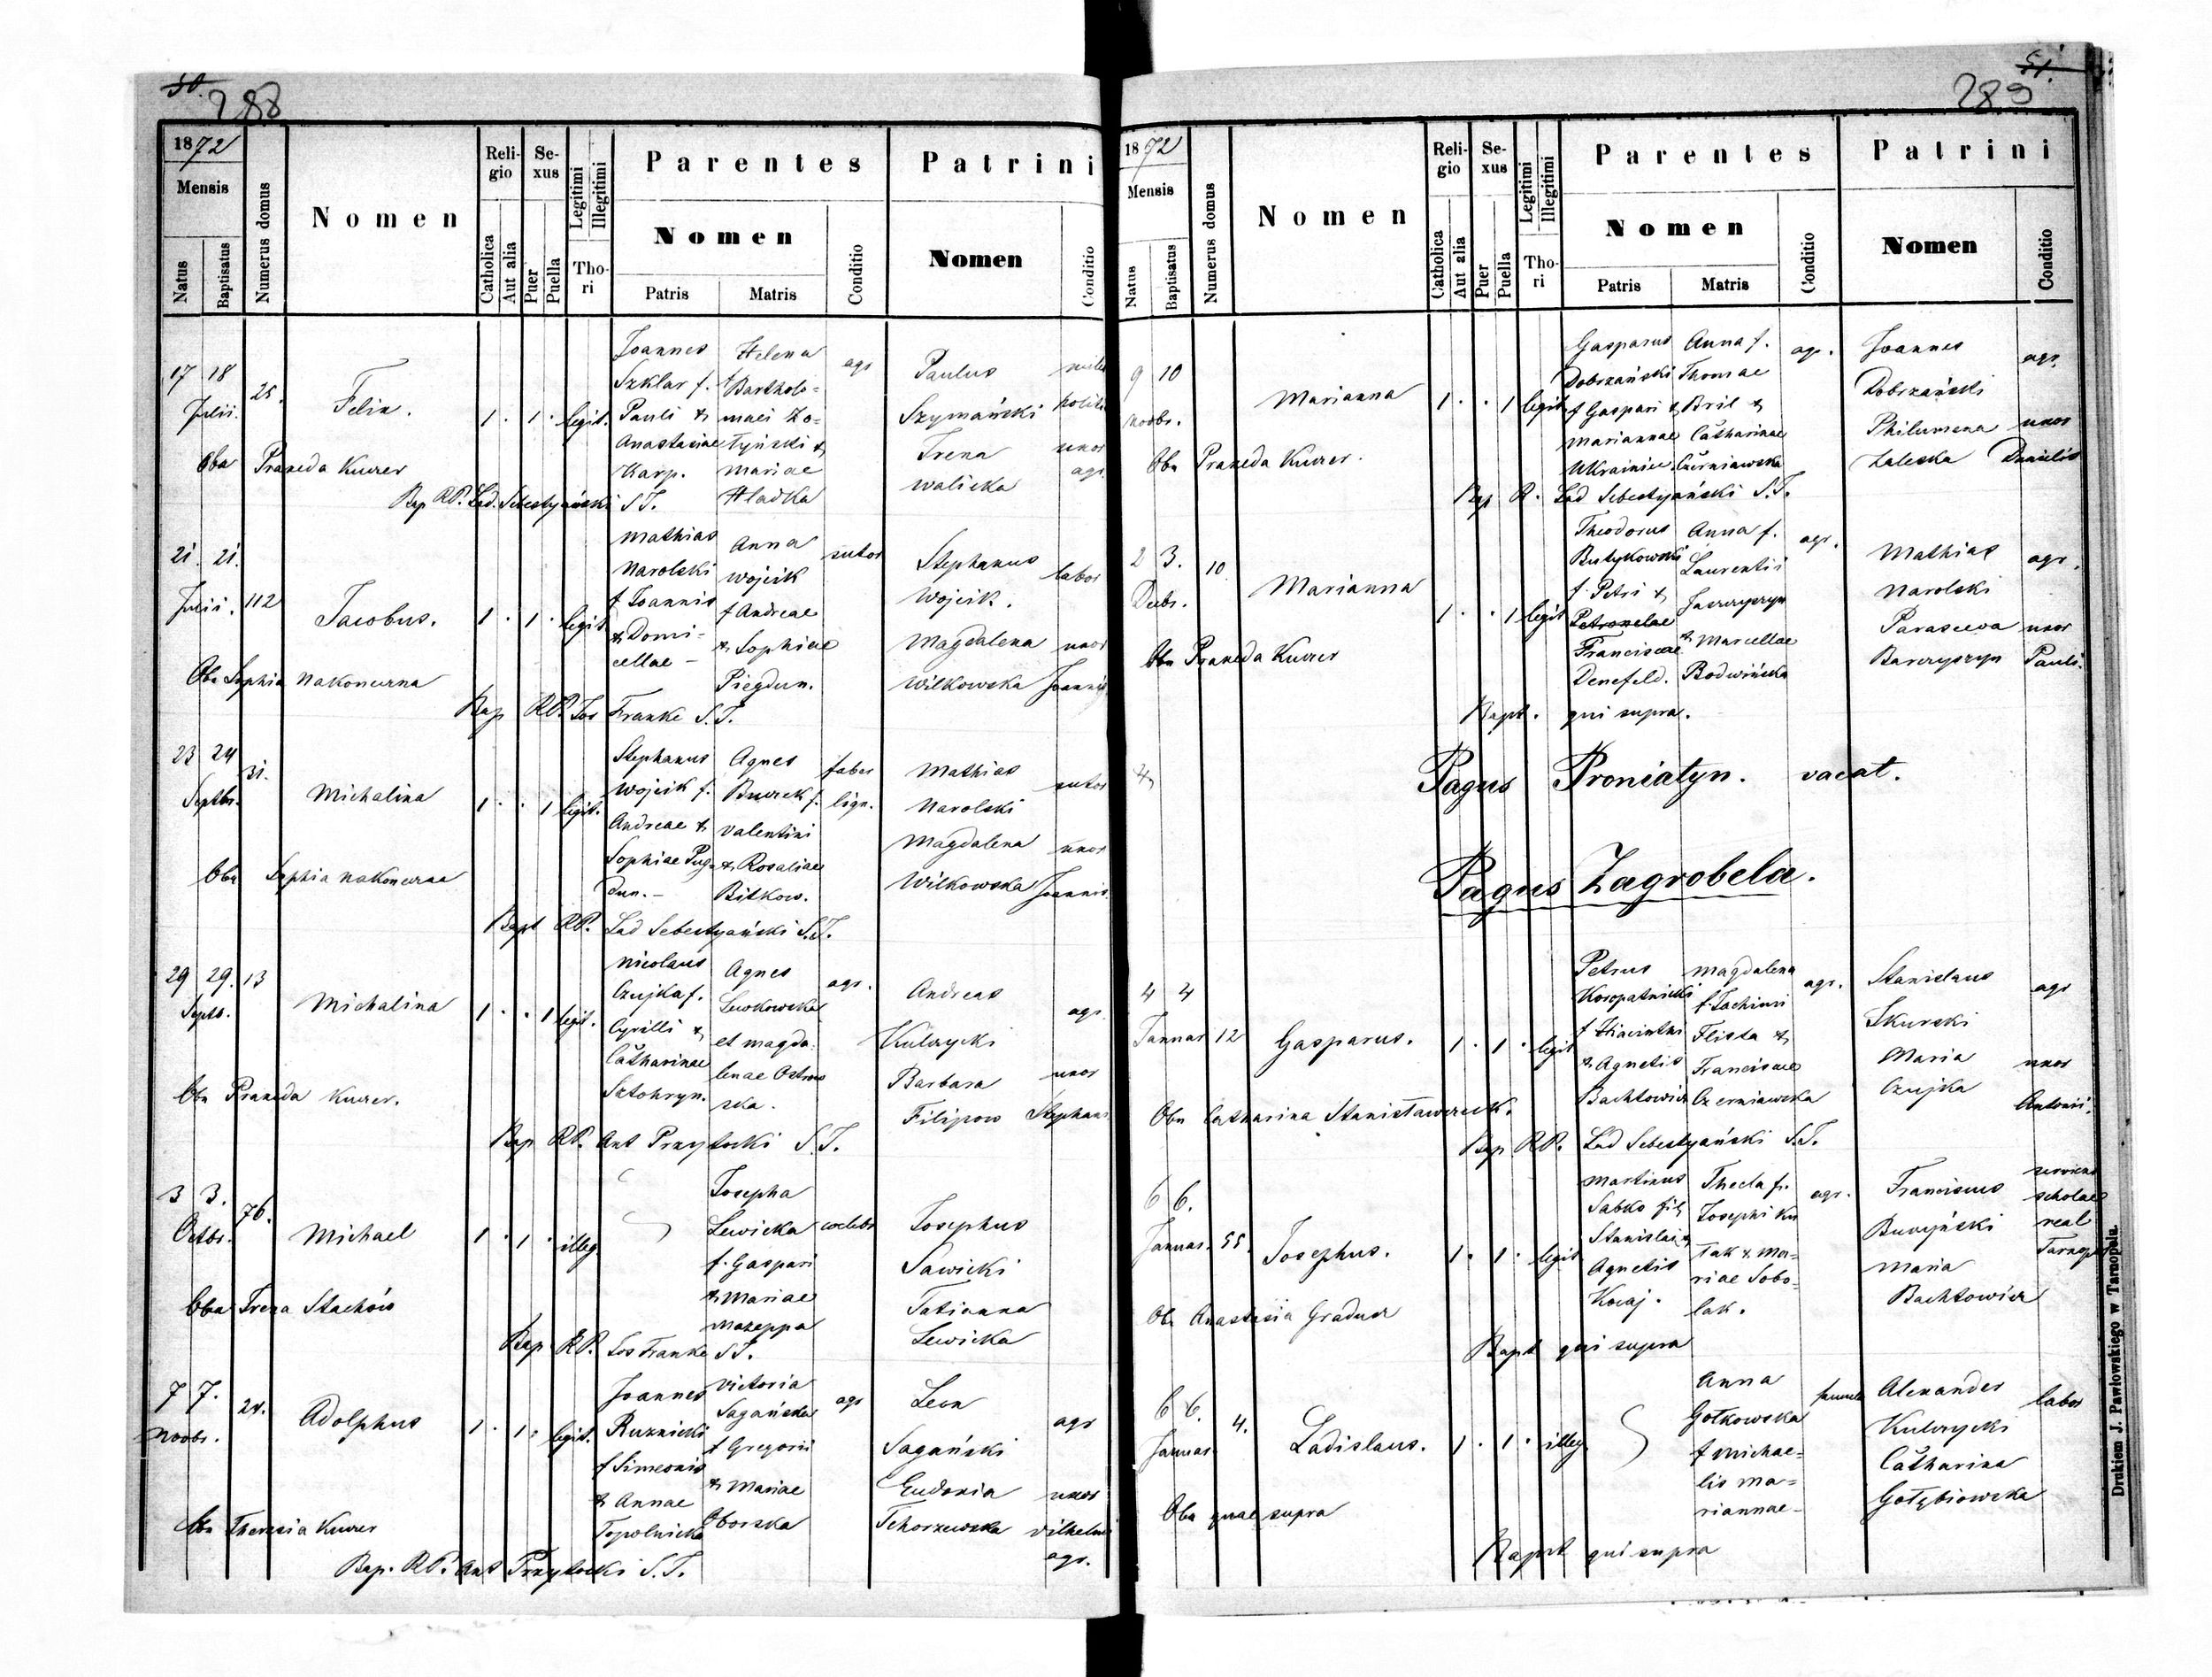 50.
288
1872
Mensis
Natus
Baptisatus
Numerus domus
Nomen
Religio
Catholica
Aut alia
Sexus
Puer
Puella
Legitimi
Illegitimi
Thori
Parentes
Nomen
Patris
Matris
Conditio
Patrini
Nomen
Conditio
17 18
Julii.
25.
Felix.
1 . 1 . legit.
Joannes
Szklar f.
Pauli &
Anastasiae
Karp.
Helena
f Bartholo=
maei Zo=
tyński &
Mariae
Hladka
agr
Paulus
Szymański
Irena
walicka
uxor
agr.
Obs Praxeda Kurzer
Bap RP. Lad. Sebestyański S.J.
21. 21.
Julii.
112
Jacobus.
1 . 1 . legit
Mathias
Narolski
f Joannis
& Domi-
cellae -
Anna
Wojcik
f Andreae
& Sophiae
Piegdun.
sutor
Stephanus
Wojcik.
Magdalena
Wilkowska
labor
uxor
Joannis
Obs Sophia Nakoneczna
Bap RP. Jos Franke S.J.
23 24
Septbr.
31.
Michalina
1 . . 1 legit.
Stephanus
Wojcik f.
Andreae &
Sophiae Pieg-
dun. -
Agnes
Burek f.
Valentini
& Rosaliae
Bitkow.
faber
lign.
Mathias
Narolski
Magdalena
Wilkowska
sutor
uxor
Joannis.
Obs Sophia Nakoneczna
Bapt RP. Lad Sebestyański S.J.
29 29.
Septb.
13
Michalina
1 . . 1 legit.
Nicolaus
Czujka f.
Cyrilli &
Catharinae
Sztohryn.
Agnes
Lewkowska
et Magda
lenae Ostrow
ska.
agr.
Andreas
Kulczycki
Barbara
Filipow
agr.
uxor
Stephani
Obs Praxeda Kurzer.
Bap RP. Ant Przytocki S.J.
3 3.
Octbr.
76.
Michael
1 . 1 . illeg
Josepha
Lewicka
f. Gaspari
& Mariae
Mazeppa
caelebs
Josephus
Sawicki
Tatianna
Lewicka
Obs Irena Stachów
Bap RP. Jos Franke S.J.
7 7.
Novbr.
28.
Adolphus
1 . 1 . legit.
Joannes
Ruznicki
f Simeonis
& Annae
Topolnicka
Victoria
Sagańska
f Gregorii
& Mariae
Oborska
agr
Leon
Sagański
Eudoxia
Tchorzewska
agr
uxor
Vilhelmi
agr.
Obs Theresia Kurzer
Bap. RP. Ant Przytocki S.J.
51.
289
1872
Mensis
Natus
Baptisatus
Numerus domus
Nomen
Religio
Catholica
Aut alia
Sexus
Puer
Puella
Legitimi
Illegitimi
Thori
Parentes
Nomen
Patris
Matris
Conditio
Patrini
Nomen
Conditio
9 10
Novbr.
Marianna
1 . . 1 legit
Gasparus
Dobrzański
f Gaspari &
Mariannae
Ukrainiec
Anna f.
Thomae
Bril &
Catharinae
Czerniawska
agr.
Joannes
Dobrzański
Philumena
Zaleska
agr.
uxor
Danielis
Obs Praxeda Kurzer.
Bap R. Lad Sebestyański S.J.
2 3.
Decbr.
10
Marianna
1 . . 1 legit
Theodorus
Butykowski
f. Petri &
Petronelae
Franciscae
Denefeld.
Anna f.
Laurentii
& Marcellae
Bodwińska
agr.
Mathias
Narolski
Parasceva
Barczyszyn
agr.
uxor
Pauli.
Obs Praxeda Kurzer
Bapt. qui supra.
Pagus Proniatyn. vacat.
Pagus Zagrobela.
4 4
Januar
12
Gasparus.
1 . 1 . legit
Petrus
Koropatnicki
f Hiacinthi
& Agnetis
Bachtowicz
Magdalena
f. Joachimi
Flista &
Franciscae
Czerniawska
agr.
Stanislaus
Skurski
Maria
Czujka
agr
uxor
Antonii.
Obs Catharina Stanisławczuk.
Bap RP. Lad Sebestyański S.J.
6 6.
Januar.
55.
Josephus.
1 . 1 . legit
Martinus
Sabko fil
Stanislai &
Agnetis
Kocaj.
Thecla f.
Josephi Ku
tak & Ma-
riae Sobo-
lak.
agr.
Franciscus
Buczyński
Maria
Bachtowicz
serviens
scholae
real
Tarnopol
Obs Anastasia Graduch
Bapt qui supra
6 6.
Januar
4.
Ladislaus.
1 . 1 . illeg
Anna
Gołkowska
f Michae=
lis Ma=
riannae-
famula
Alexander
Kulczycki
Catharina
Gołębiowska
labor
Obs quae supra
Bapt qui supra
Drukiem J. Pawłowskiego w Tarnopolu.